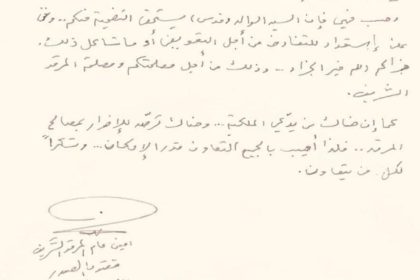 وحب فيّ فإن السيد الوالد (قدس) يستحق التضحية منكم.. ونحن
على إستعداد للتفاوض من أجل التعويض أو ما شاكل ذلك.
فجزاكم الله خير الجزاء... وذلك من أجل مصلحتكم ومصلحة المرقد
الشريف.
كما إن هناك من يدّعي الملكية... وهناك ترصّد للإضرار بمصالح
المرقد.. فلذا أهيب بالجميع التعاون قدر الإمكان... وشكراً
لكل من يتعاون.
امين عام المرقد الشريف
مقتدى الصدر